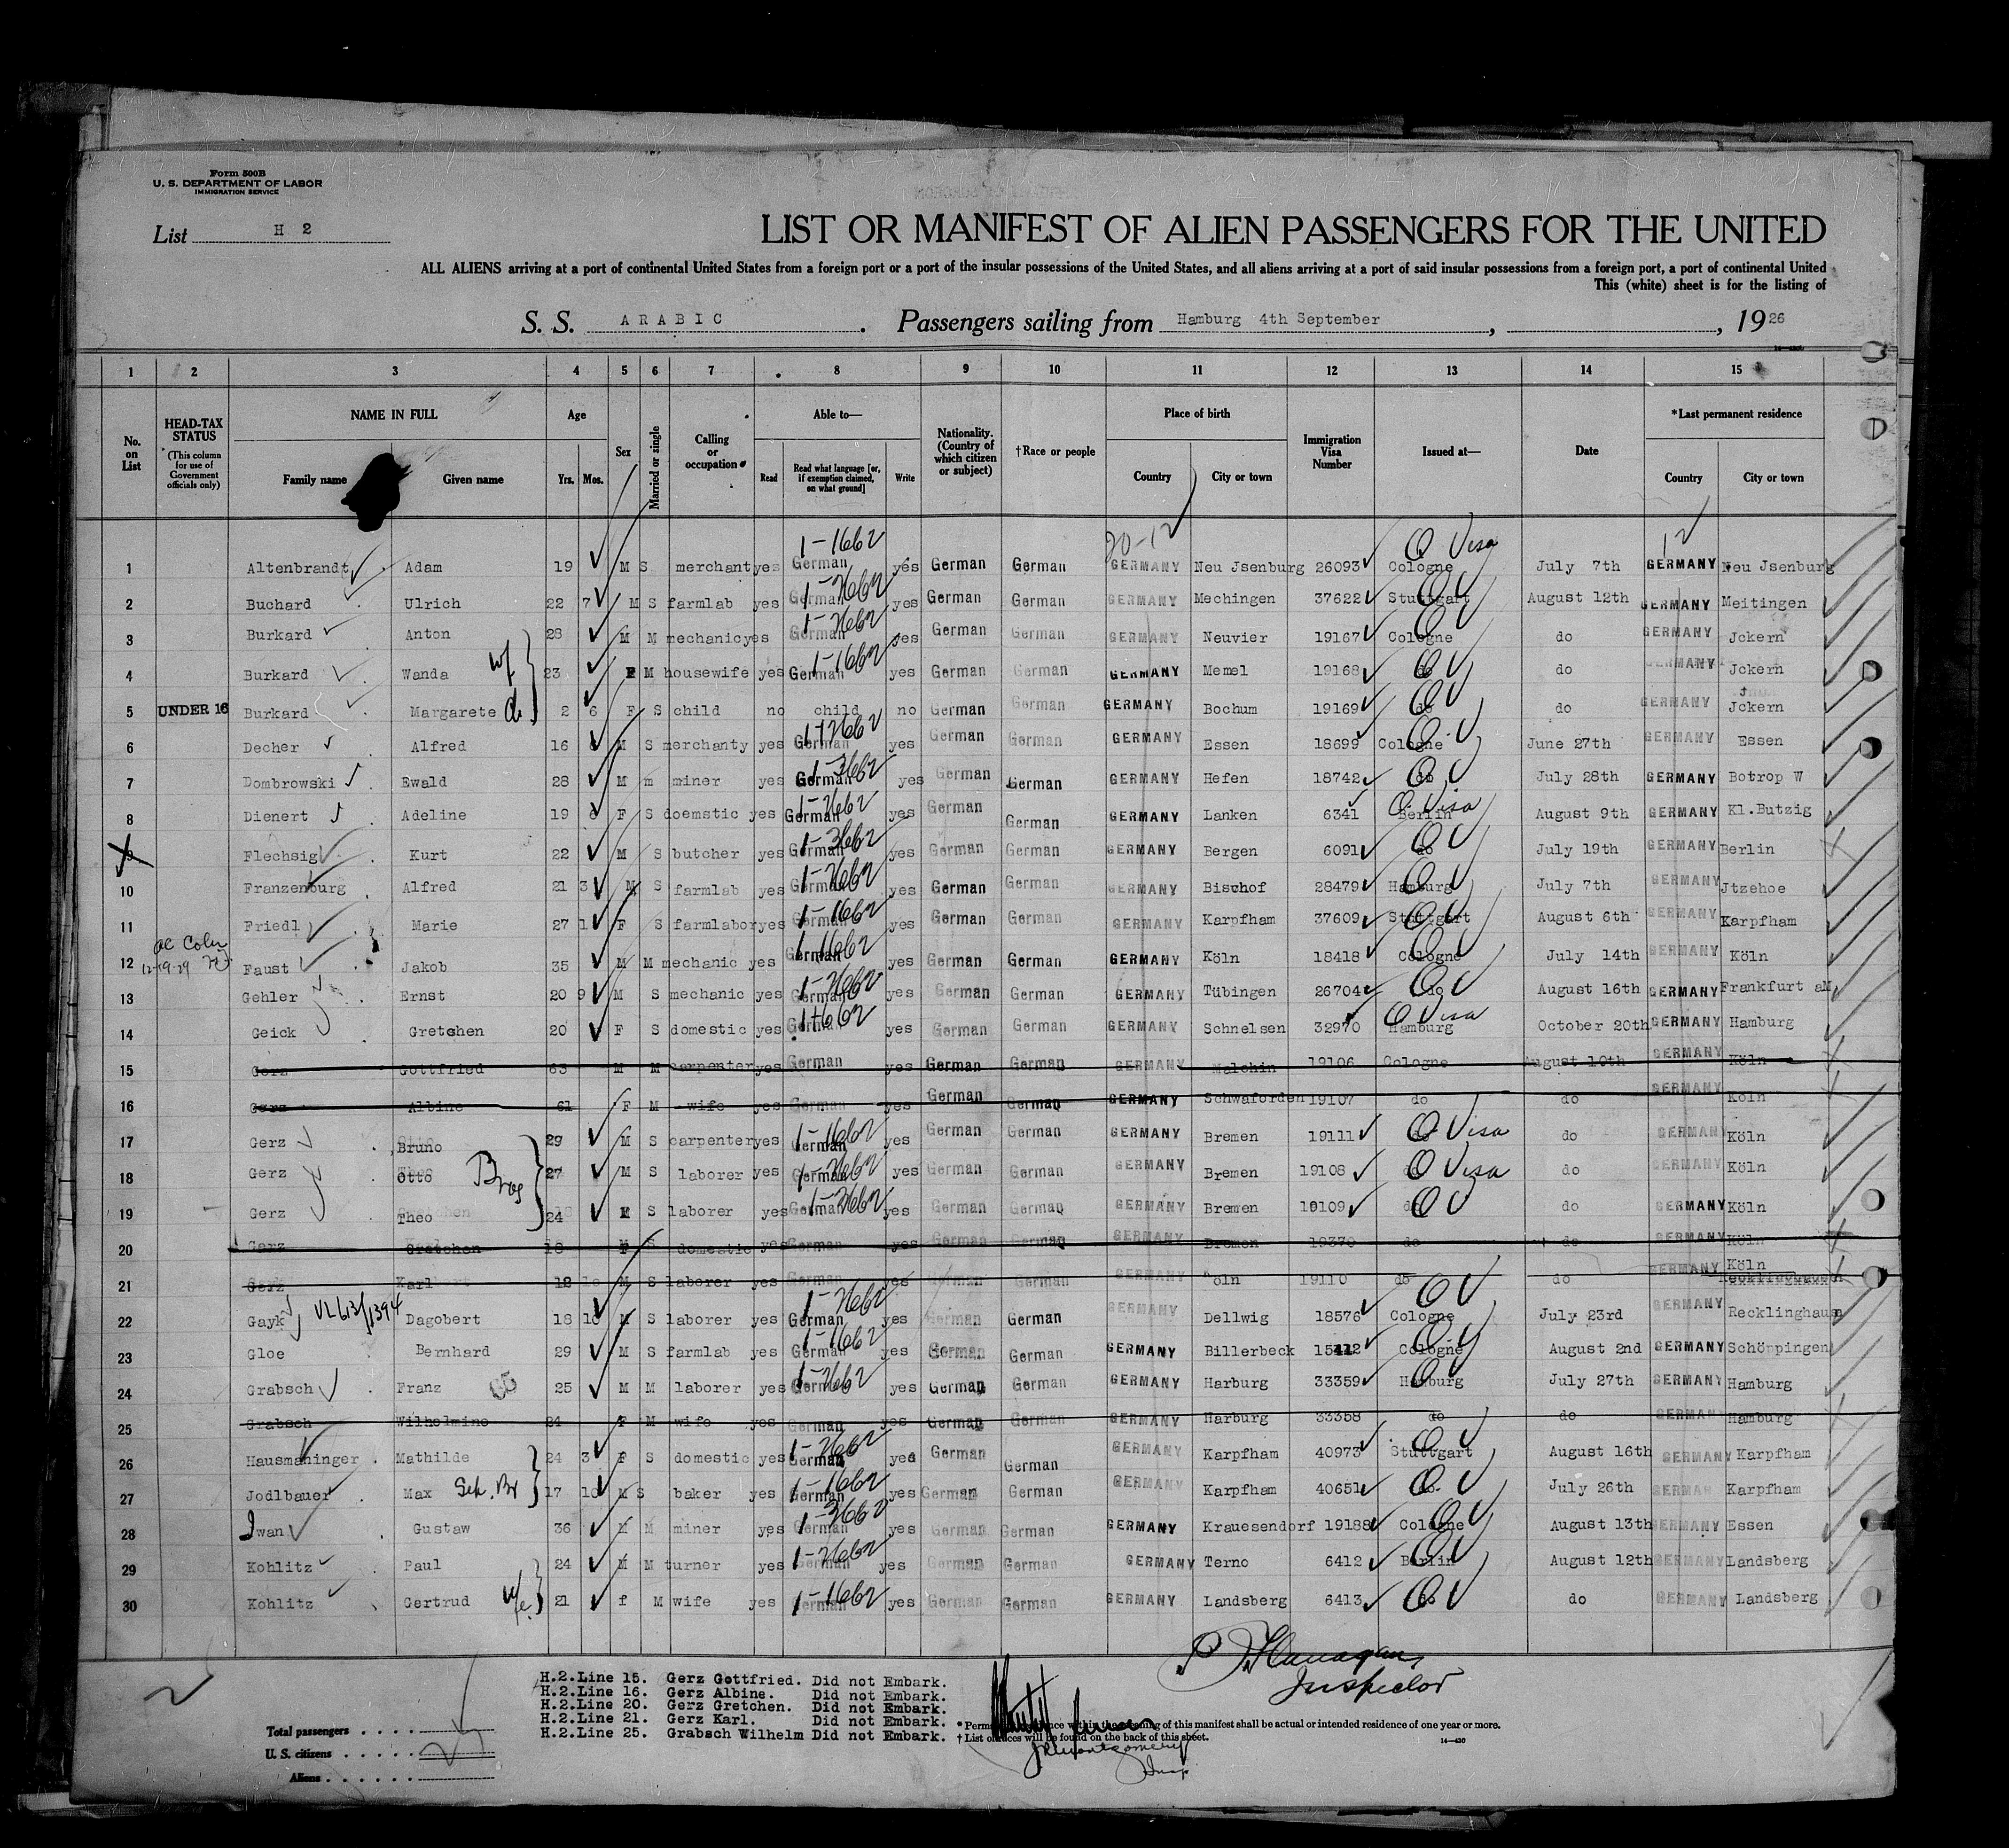 Form 500B
U. S. DEPARTMENT OF LABOR
IMMIGRATION SERVICE
List H 2
LIST OR MANIFEST OF ALIEN PASSENGERS FOR THE UNITED
ALL ALIENS arriving at a port of continental United States from a foreign port or a port of the insular possessions of the United States, and all aliens arriving at a port of said insular possessions from a foreign port, a port of continental United
This (white) sheet is for the listing of
S. S. ARABIC. Passengers sailing from Hamburg 4th September, , 1926
1 2 3 4 5 6 7 8 9 10 11 12 13 14 15
No. on List
HEAD-TAX STATUS (This column for use of Government officials only)
NAME IN FULL Family name Given name
Age Yrs. Mos.
Sex
Married or single
Calling or occupation
Able to— Read Read what language [or, if exemption claimed, on what ground] Write
Nationality. (Country of which citizen or subject)
†Race or people
Place of birth Country City or town
Immigration Visa Number
Issued at—
Date
*Last permanent residence Country City or town
20-12 12
1 Altenbrandt Adam 19 M S merchant yes German 1-1662 yes German German GERMANY Neu Jsenburg 26093 Cologne O Visa July 7th GERMANY Neu Jsenburg
2 Buchard Ulrich 22 7 M S farmlab yes German 1-2662 yes German German GERMANY Mechingen 37622 Stuttgart O V August 12th GERMANY Meitingen
3 Burkard Anton 28 M M mechanic yes German 1-2662 yes German German GERMANY Neuvier 19167 Cologne O V do GERMANY Jckern
4 Burkard Wanda wf 23 F M housewife yes German 1-1662 yes German German GERMANY Memel 19168 do O V do GERMANY Jckern
5 UNDER 16 Burkard Margarete 2 6 F S child no child no German German GERMANY Bochum 19169 do O V do GERMANY Jckern
6 Decher Alfred 16 M S merchanty yes German 1-2662 yes German German GERMANY Essen 18699 Cologne O V June 27th GERMANY Essen
7 Dombrowski Ewald 28 M m miner yes German 1-3662 yes German German GERMANY Hefen 18742 do O V July 28th GERMANY Botrop W
8 Dienert Adeline 19 6 F S doemstic yes German 1-2662 yes German German GERMANY Lanken 6341 Berlin O Visa August 9th GERMANY Kl.Butzig
9 Flechsig Kurt 22 M S butcher yes German 1-3662 yes German German GERMANY Bergen 6091 do O V July 19th GERMANY Berlin
10 Franzenburg Alfred 21 3 M S farmlab yes German 1-2662 yes German German GERMANY Bischof 28479 Hamburg O V July 7th GERMANY Jtzehoe
11 Friedl Marie 27 1 F S farmlabor yes German 1-1662 yes German German GERMANY Karpfham 37609 Stuttgart O V August 6th GERMANY Karpfham
12 12-19-29 Faust Jakob 35 M M mechanic yes German 1-1662 yes German German GERMANY Köln 18418 Cologne O V July 14th GERMANY Köln
13 Gehler Ernst 20 9 M S mechanic yes German 1-2662 yes German German GERMANY Tübingen 26704 do O V August 16th GERMANY Frankfurt aM
14 Geick Gretchen 20 F S domestic yes German 1-1662 yes German German GERMANY Schnelsen 32970 Hamburg O Visa October 20th GERMANY Hamburg
15 Gerz Gottfried 63 M M carpenter yes German yes German German GERMANY Malchin 19106 Cologne August 10th GERMANY Köln
16 Gerz Albine 61 F M wife yes German yes German German GERMANY Schwaforden 19107 do do GERMANY Köln
17 Gerz Bruno 29 M S carpenter yes German 1-1662 yes German German GERMANY Bremen 19111 do O Visa do GERMANY Köln
18 Gerz Otto Bros 27 M S laborer yes German 1-2662 yes German German GERMANY Bremen 19108 do O Visa do GERMANY Köln
19 Gerz Theo 24 M S laborer yes German 1-3662 yes German German GERMANY Bremen 19109 do O V do GERMANY Köln
20 Gerz Gretchen 18 F S domestic yes German yes German German GERMANY Bremen 19370 do do GERMANY Köln
21 Gerz Karl 12 M S laborer yes German yes German GERMANY Köln 19110 do do GERMANY Köln
22 Gayk VL613/1394 Dagobert 18 10 M S laborer yes German 1-2662 yes German German GERMANY Dellwig 18576 Cologne O V July 23rd GERMANY Recklinghausn
23 Gloe Bernhard 29 M S farmlab yes German 1-1662 yes German German GERMANY Billerbeck 15412 Cologne O V August 2nd GERMANY Schöppingen
24 Grabsch Franz 25 M M laborer yes German 1-2662 yes German German GERMANY Harburg 33359 Hamburg O V July 27th GERMANY Hamburg
25 Grabsch Wilhelmine 24 F M wife yes German yes German German GERMANY Harburg 33358 do do GERMANY Hamburg
26 Hausmaninger Mathilde 24 3 F S domestic yes German 1-2662 yes German German GERMANY Karpfham 40973 Stuttgart O V August 16th GERMANY Karpfham
27 Jodlbauer Max 17 10 M S baker yes German 1-1662 yes German German GERMANY Karpfham 40651 do. O V July 26th GERMANY Karpfham
28 Iwan Gustaw 36 M M miner yes German 1-3662 yes German German GERMANY Krauesendorf 19188 Cologne O V August 13th GERMANY Essen
29 Kohlitz Paul 24 M M turner yes German 1-2662 yes German German GERMANY Terno 6412 Berlin O V August 12th GERMANY Landsberg
30 Kohlitz Gertrud wife 21 f M wife yes German 1-1662 yes German German GERMANY Landsberg 6413 do O V do GERMANY Landsberg
P Flanagan
Inspector
H.2.Line 15. Gerz Gottfried. Did not Embark.
H.2.Line 16. Gerz Albine. Did not Embark.
H.2.Line 20. Gerz Gretchen. Did not Embark.
H.2.Line 21. Gerz Karl. Did not Embark.
H.2.Line 25. Grabsch Wilhelm Did not Embark.
Total passengers
U. S. citizens
Aliens
* Permanent residence within the meaning of this manifest shall be actual or intended residence of one year or more.
† List of races will be found on the back of this sheet.
14—430